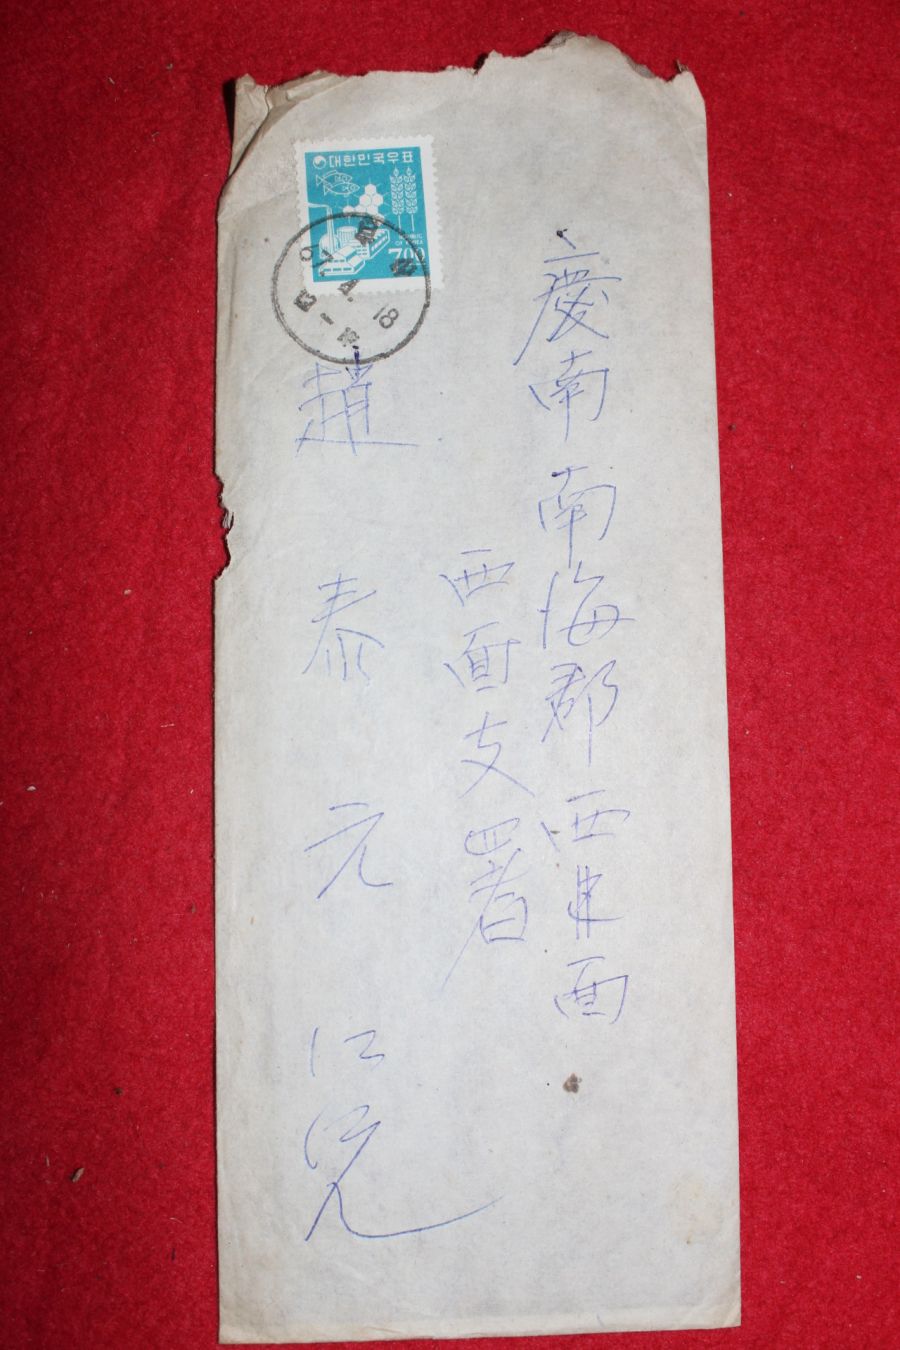 대한민국우표
REPUBLIC
OF KOREA
700
18
慶南南海郡西面
西面支署
趙泰元仁兄